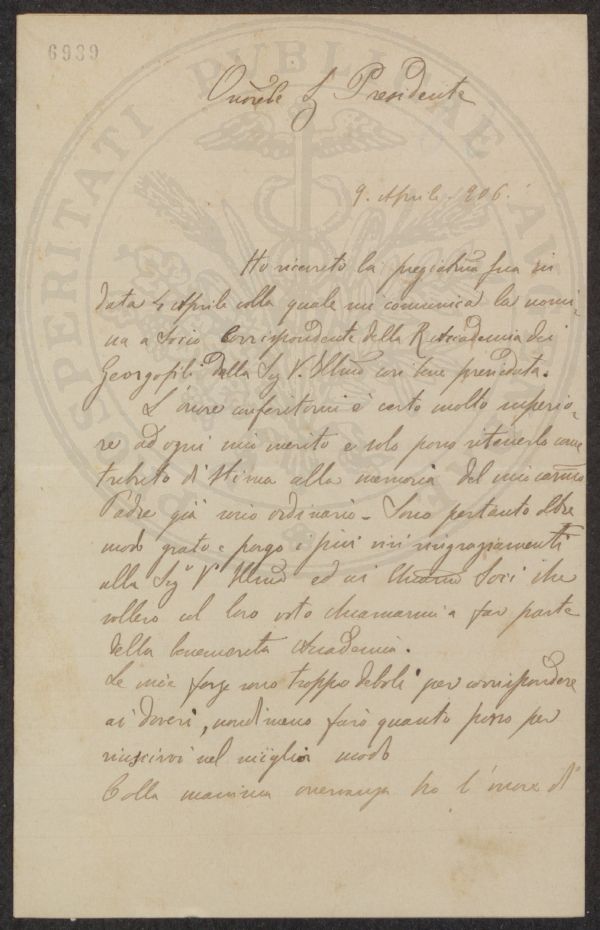 6939
Onorble Sg Presidente
9. Aprile. 906.
Ho ricevuto la pregiatma sua in
data 4 Aprile colla quale mi comunica la nomi-
na a Socio Corrispondente della R. Accademia dei
Georgofili dalla Sig V. Illma così bene presieduta.
L'onore conferitomi è certo molto superio-
re ad ogni mio merito e solo posso ritenerlo come
tributo di stima alla memoria del mio carmo
Padre già socio ordinario. Sono pertanto oltre
modo grato e porgo i più vivi ringraziamenti
alla Sigа V Illma ed ai Chiarmi Soci che
vollero col loro voto chiamarmi a far parte
della benemerita Accademia.
Le mie forze sono troppo deboli per corrispondere
ai doveri, nondimeno farò quanto posso per
riuscirvi nel miglior modo
Colla massima osservanza ho l'onore di
PROSPERITATI PUBLICAE AUGENDAE